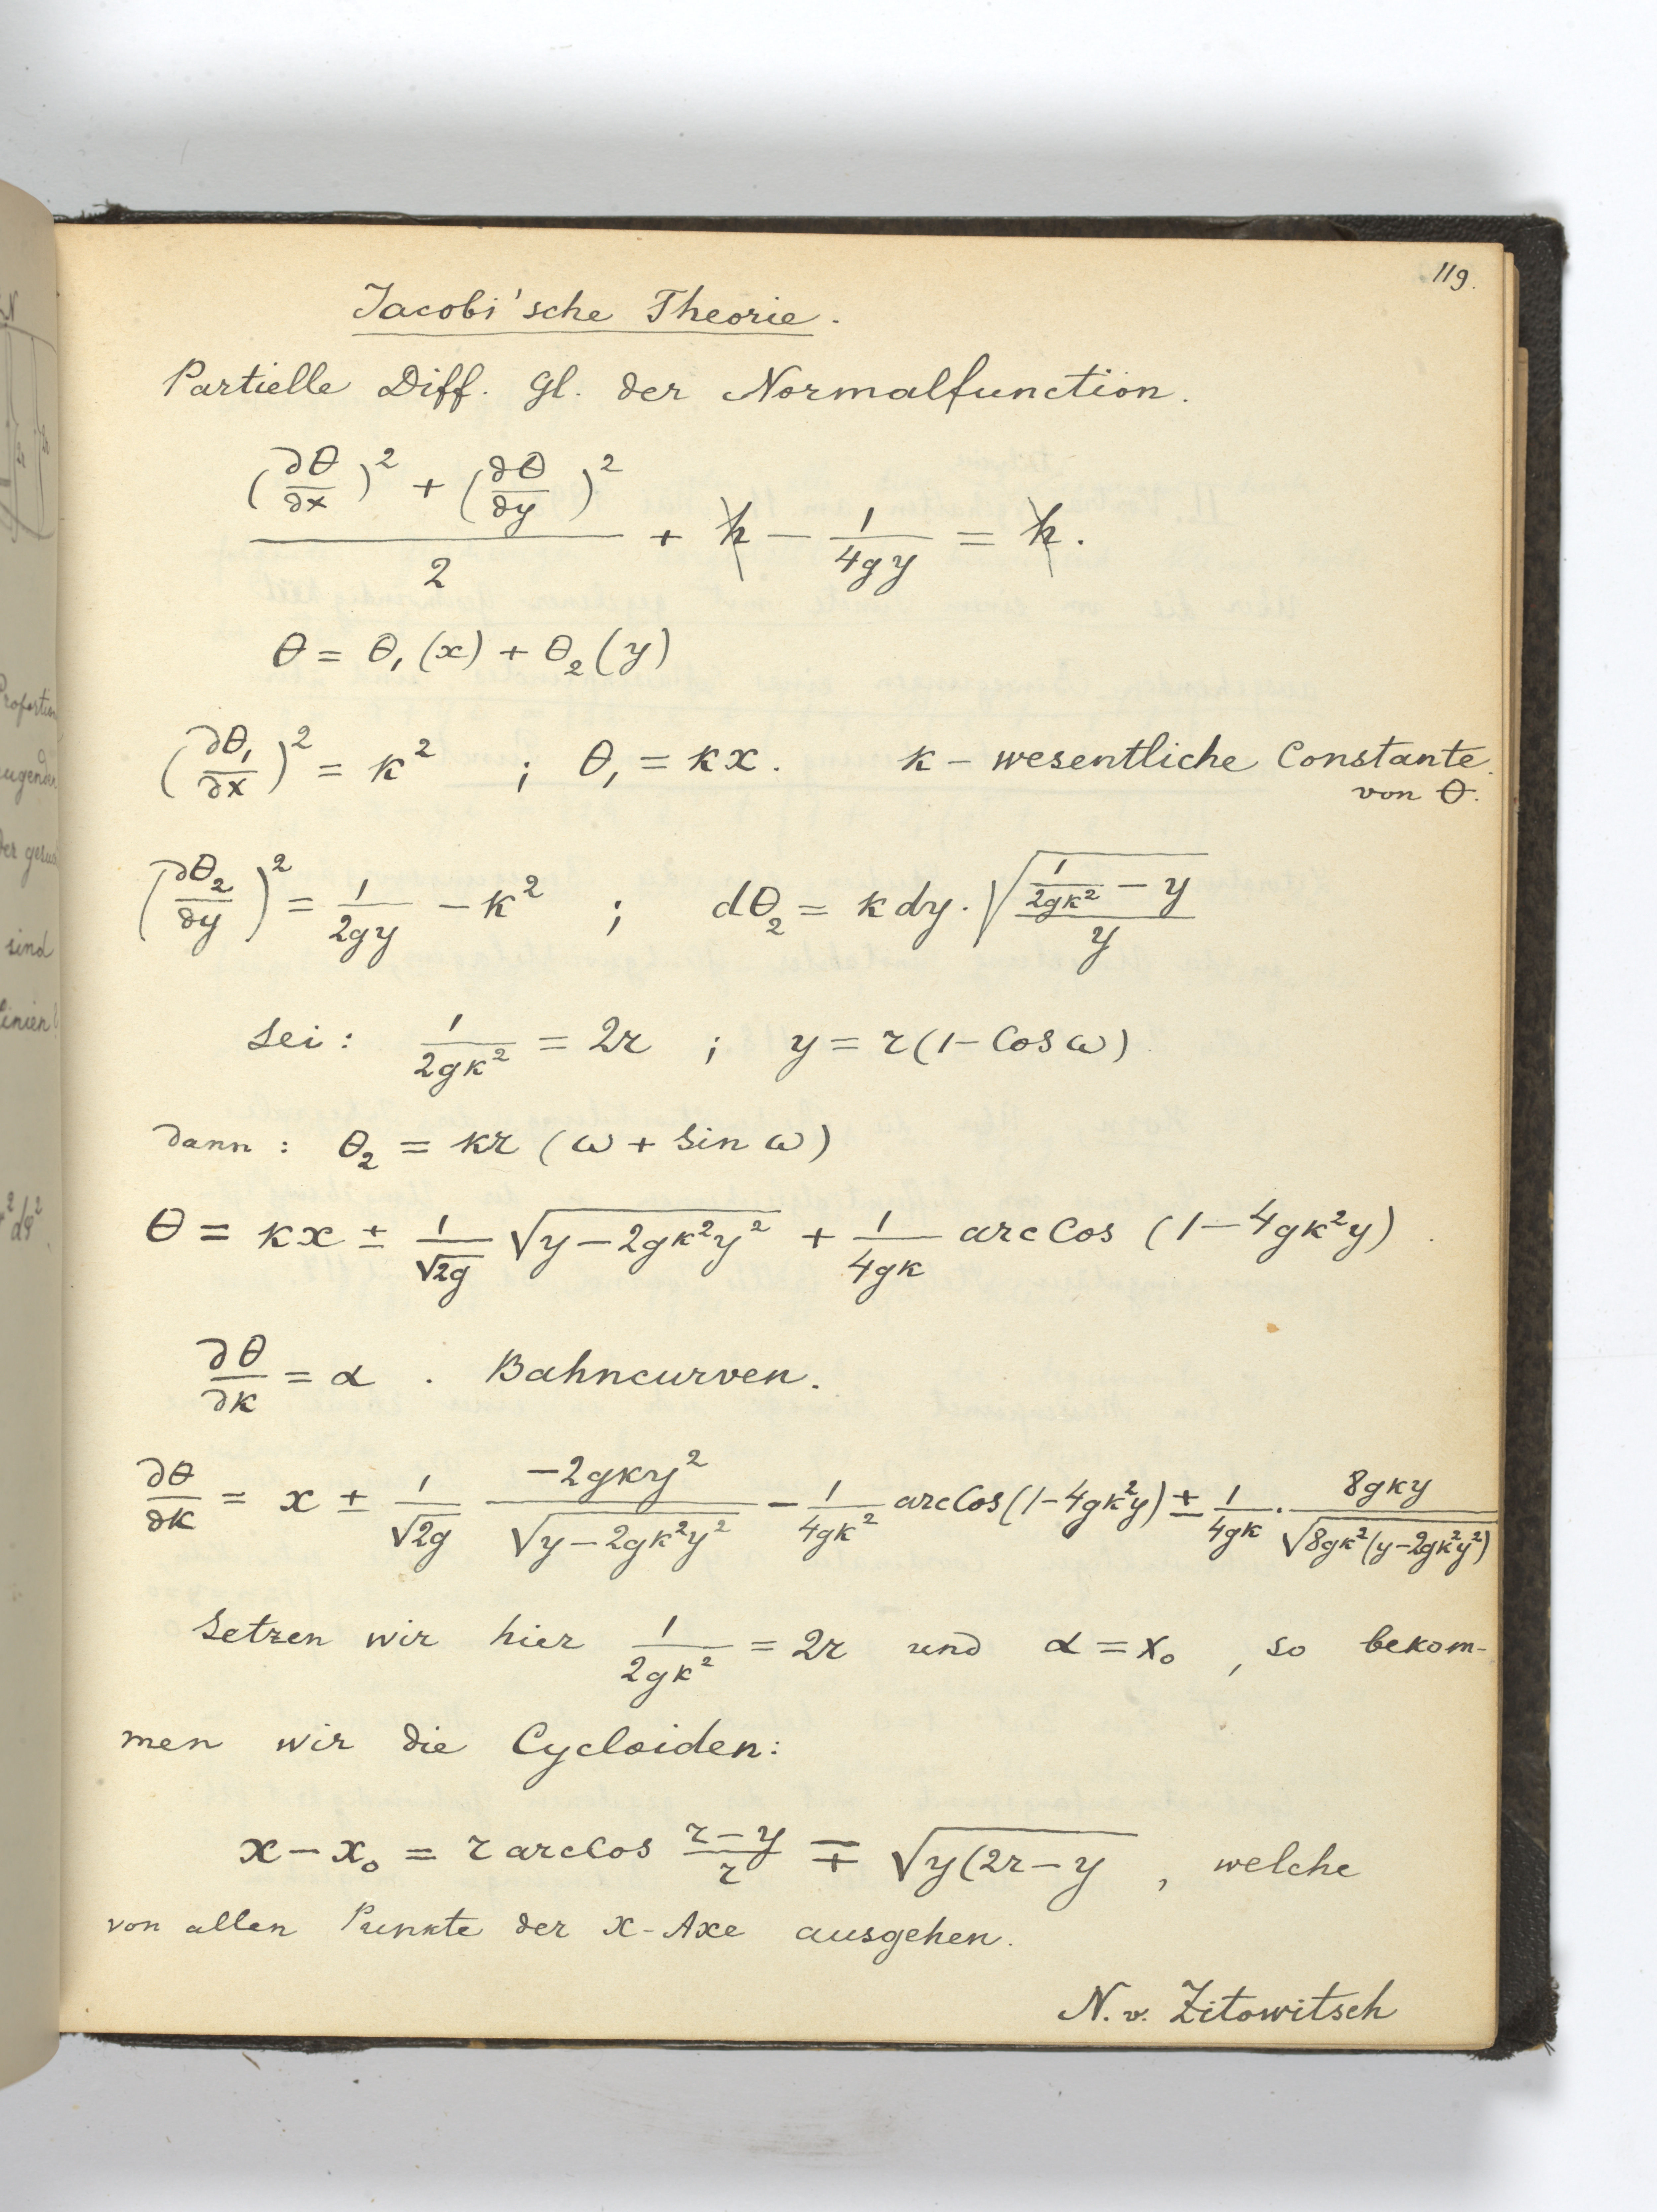 119.
Jacobi'sche Theorie.
Partielle Diff. Gl. der Normalfunction.
((∂θ/∂x)² + (∂θ/∂y)²)/2 + h − 1/(4gy) = h.
θ = θ₁(x) + θ₂(y)
(∂θ₁/∂x)² = k² ; θ₁ = kx. k – wesentliche Constante
von θ.
(∂θ₂/∂y)² = 1/(2gy) − k² ; dθ₂ = k dy · √((1/(2gk²) − y)/y)
Sei: 1/(2gk²) = 2r ; y = r(1 − Cos ω)
dann: θ₂ = kr (ω + Sin ω)
θ = kx ± 1/√2g √(y − 2gk²y²) + 1/(4gk) arcCos (1 − 4gk²y).
∂θ/∂k = α. Bahncurven.
∂θ/∂k = x ± 1/√2g (−2gky²)/√(y − 2gk²y²) − 1/(4gk²) arcCos(1 − 4gk²y) ± 1/(4gk) · 8gky/√(8gk²(y − 2gk²y²))
Setzen wir hier 1/(2gk²) = 2r und α = x₀, so bekom-
men wir die Cycloiden:
x − x₀ = r arcCos (r − y)/r ∓ √(y(2r − y, welche
von allen Punkte der x-Axe ausgehen.
N. v. Zitowitsch
sind